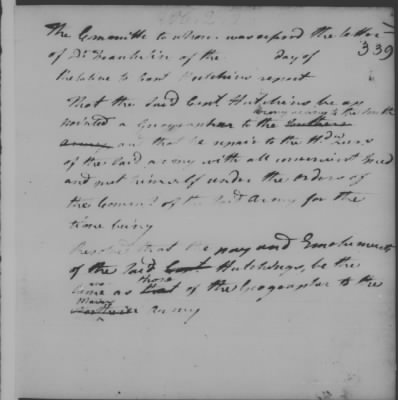 339
The Committee to whom was referred the letter
of Dr Franklin of the day of
Relative to Capt Hutchins report
That the said Capt. Hutchins be ap
pointed a Geographer to the Southern
army and that he repair to the Hd. Qurs
of the said army with all convenient speed
and put himself under the orders of
the Commd of the said Army for the
time being
Resolved that the pay and Emoluments
of the said Capt Hutchings, be the
same as those that of the Geographer to the
Main
army